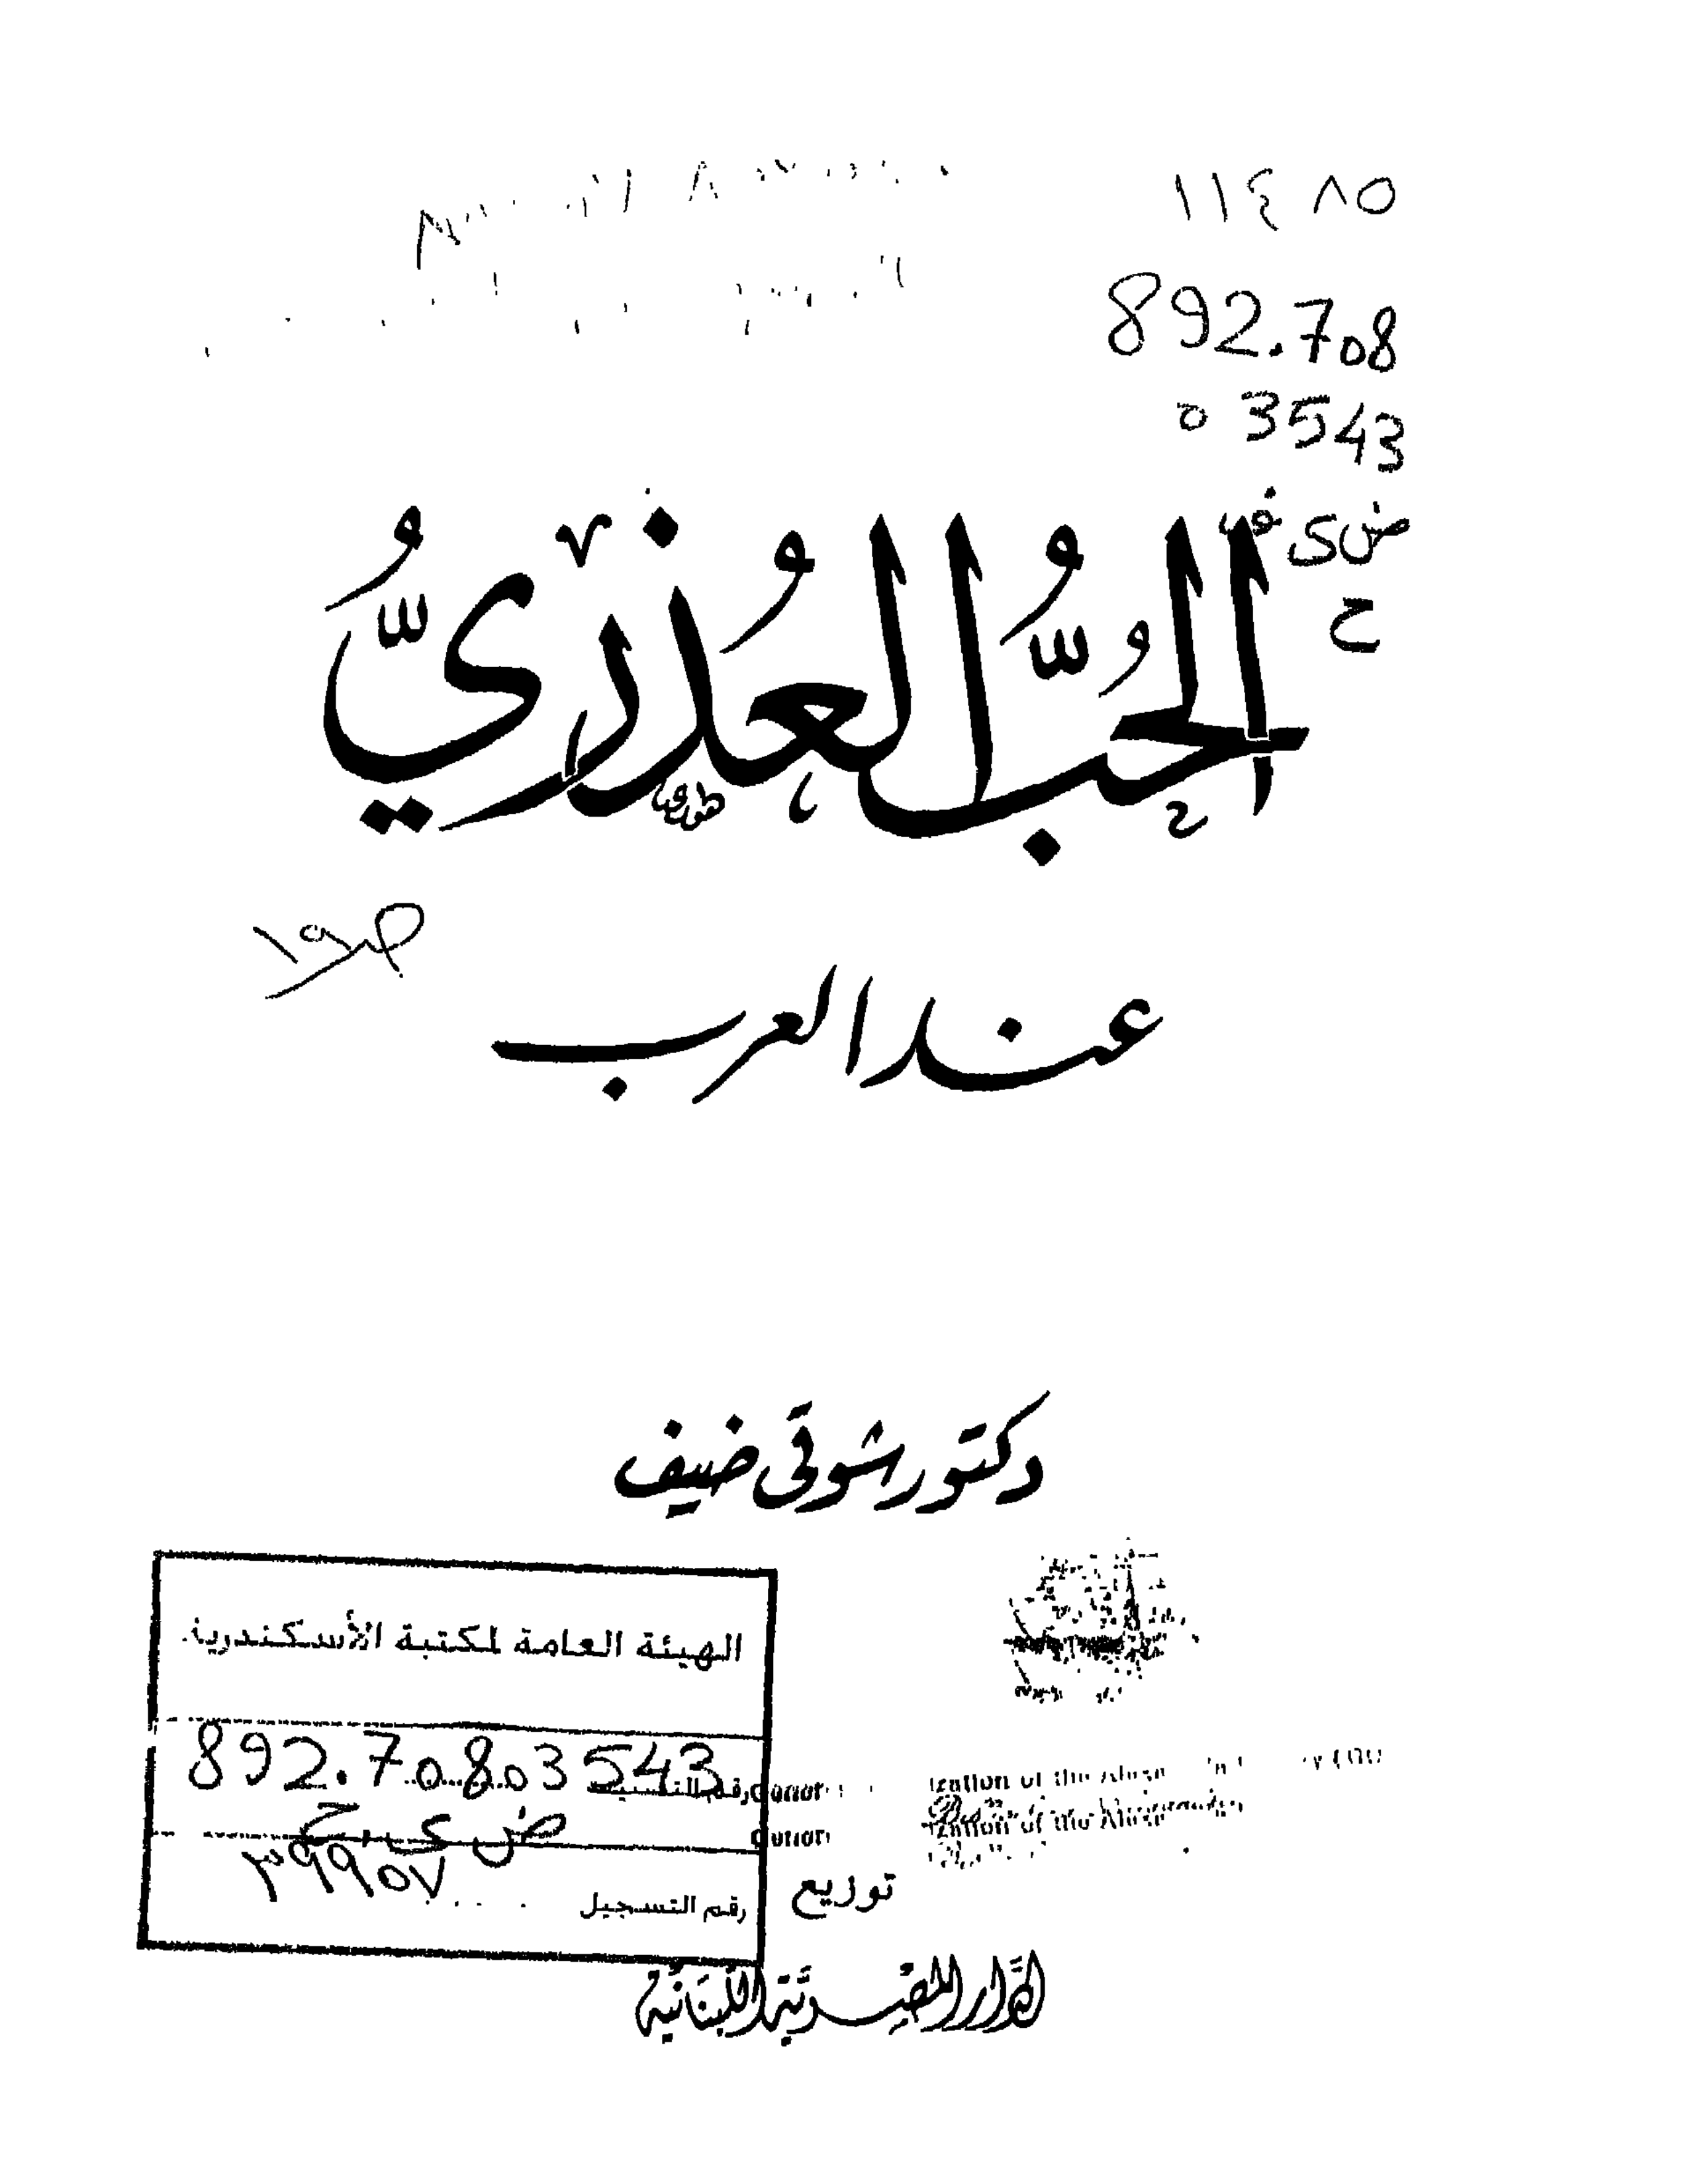 ١١٤٨٥
892.708
03543
ض ي ف
ح
الحُبُّ العُذْرِيُّ
عند العرب
دكتور شوقى ضيف
الهيئة العامة لمكتبة الأسكندرية
892.70803543
رقم التسجيل ٣٩٩٥٧
توزيع
الدَّار المصْريَّة اللبنَانيَّة